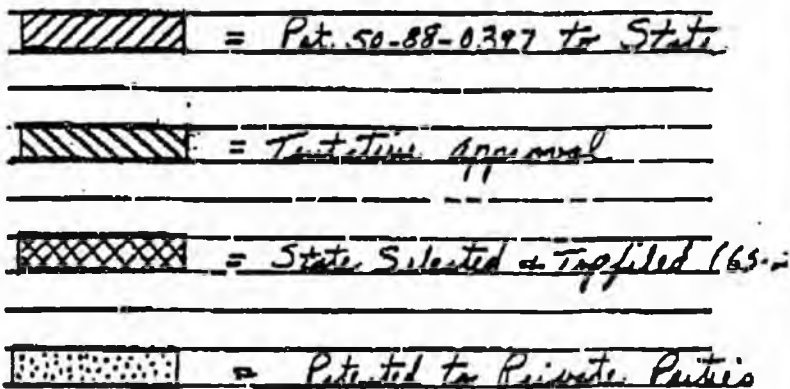 = Pat. 50-88-0397 to State
= Tentative Approval
= State Selected & Topfiled (GS-
= Patented to Private Parties